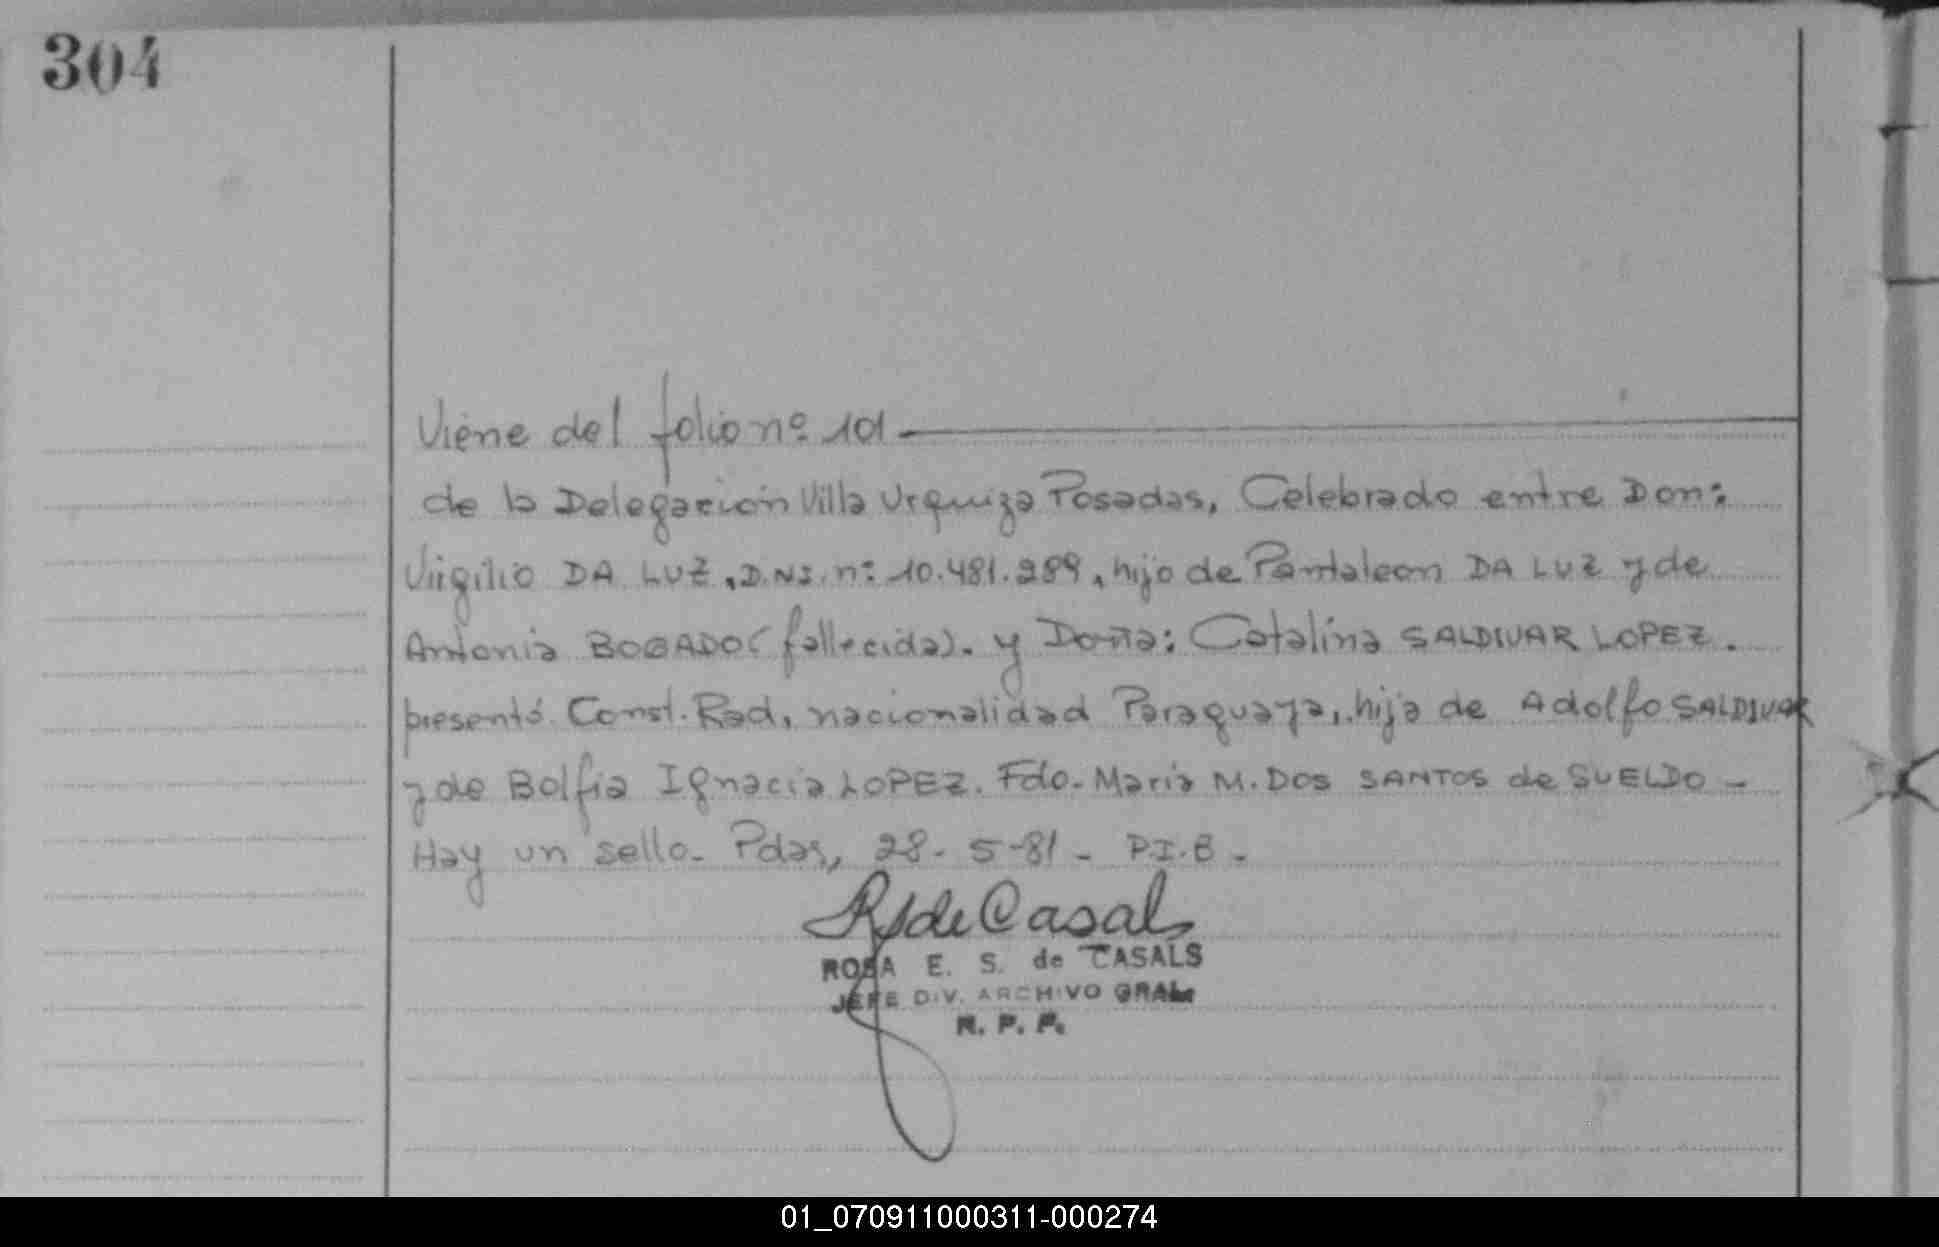 304
Viene del folio nº 101
de la Delegación Villa Urquiza Posadas, Celebrado entre Don:
Virgilio DA LUZ, D.N.I. nº 10.481.289, hijo de Pantaleon DA LUZ y de
Antonia BOGADO (fallecida). y Doña: Catalina SALDIVAR LOPEZ.
presentó Const. Rad, nacionalidad Paraguaya, hija de Adolfo SALDIVAR
y de Bolfia Ignacia LOPEZ. Fdo. Maria M. DOS SANTOS de SUELDO -
Hay un sello. Pdas, 28-5-81 - P.I.B -
RSdeCasals
ROSA E. S. de CASALS
JEFE DIV. ARCHIVO GRAL.
R. P. P.
01_070911000311-000274